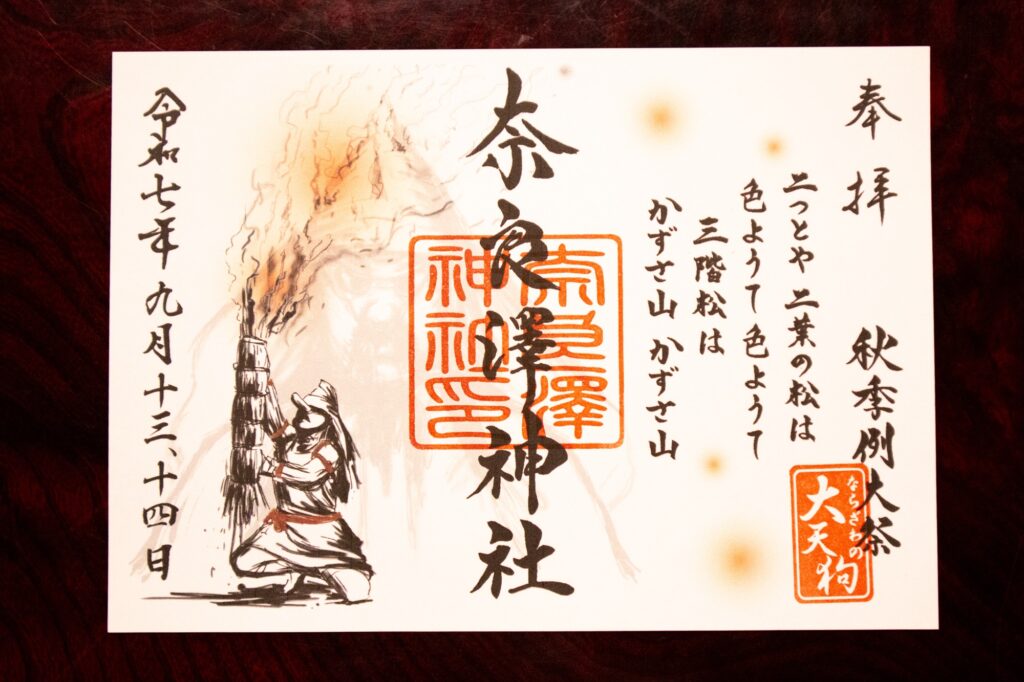 奉拝
秋季例大祭
ならさわの
大天狗
二つとや 二葉の松は
色ようて色ようて
三階松は
かずさ山 かずさ山
奈良澤神社
奈良澤
神社印
令和七年九月十三、十四日